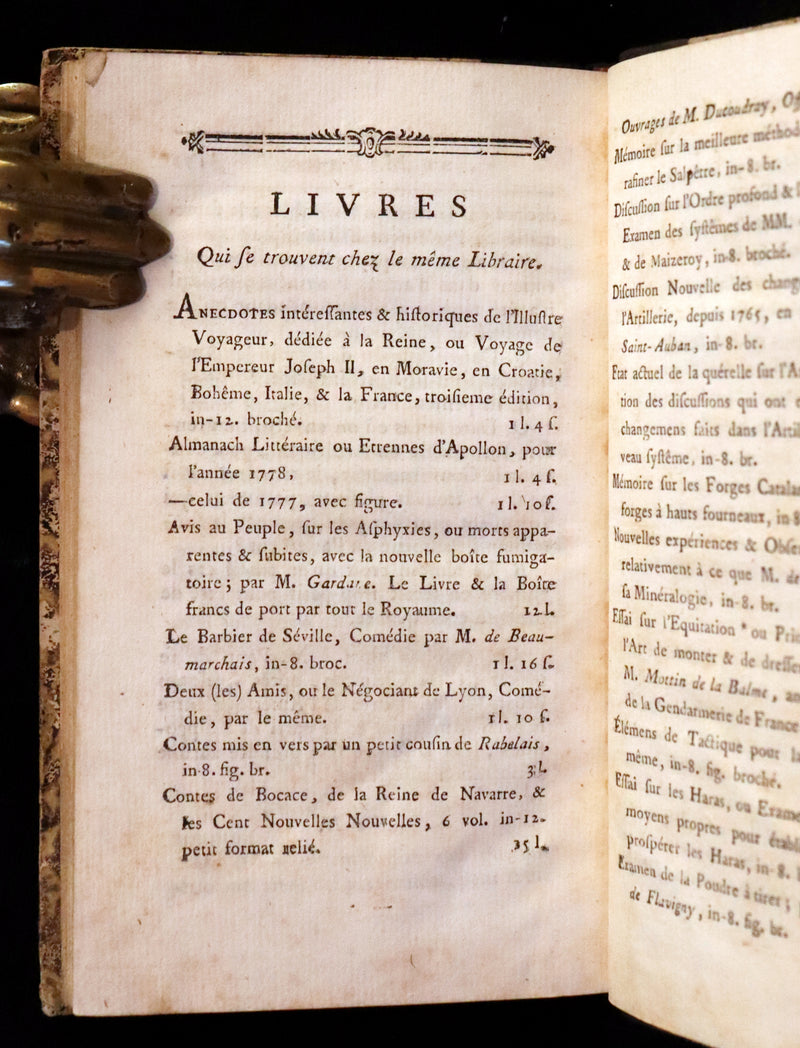 LIVRES
Qui ſe trouvent chez le même Libraire.
ANECDOTES intéreſſantes & hiſtoriques de l'Illuſtre
Voyageur, dédiée à la Reine, ou Voyage de
l'Empereur Joſeph II, en Moravie, en Croatie,
Bohême, Italie, & la France, troiſieme édition,
in-12. broché. 1 l. 4 ſ.
Almanach Littéraire ou Etrennes d'Apollon, pour
l'année 1778, 1 l. 4 ſ.
—celui de 1777, avec figure. 1 l. 10 ſ.
Avis au Peuple, ſur les Aſphyxies, ou morts appa-
rentes & ſubites, avec la nouvelle boîte fumiga-
toire; par M. Gardane. Le Livre & la Boîte
francs de port par tout le Royaume. 12 l.
Le Barbier de Séville, Comédie par M. de Beau-
marchais, in-8. broc. 1 l. 16 ſ.
Deux (les) Amis, ou le Négociant de Lyon, Comé-
die, par le même. 1 l. 10 ſ.
Contes mis en vers par un petit couſin de Rabelais,
in-8. fig. br. 3 l.
Contes de Bocace, de la Reine de Navarre, &
les Cent Nouvelles Nouvelles, 6 vol. in-12.
petit format relié. 15 l.
Ouvrages de M. Ducoudray,
Mémoire ſur la meilleure
rafiner le Salpêtre, in-8. br.
Diſcuſſion ſur l'Ordre profond &
Examen des ſyſtêmes de MM.
& de Maizeroy, in-8. broché.
Diſcuſſion Nouvelle des
l'Artillerie, depuis 1765, en
Saint-Auban, in-8. br.
Etat actuel de la querelle ſur
tion des diſcuſſions qui ont
changemens faits dans
veau ſyſtême, in-8. br.
Mémoire ſur les Forges
forges à hauts fourneaux,
Nouvelles expériences &
relativement à ce que M. de
ſa Minéralogie, in-8. br.
Eſſai ſur l'Equitation ou
l'Art de monter & de dreſſer
M. Mottin de la Balme,
de la Gendarmerie de France
Élémens de Tactique pour
même, in-8. fig. broché.
Eſſai ſur les Haras, ou
moyens propres pour
proſpérer les Haras, in-8.
Examen de la Poudre à tirer;
de Flavigny, in-8. fig. br.